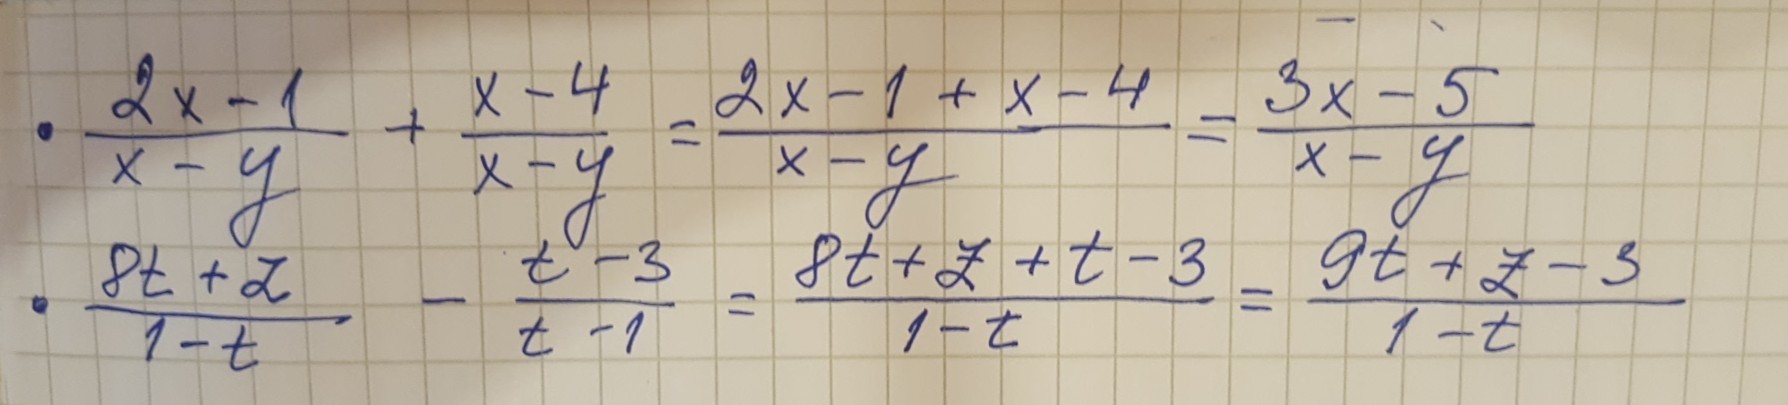 • \frac{2x-1}{x-y} + \frac{x-4}{x-y} = \frac{2x-1+x-4}{x-y} = \frac{3x-5}{x-y}
• \frac{8t+z}{1-t} - \frac{t-3}{t-1} = \frac{8t+z+t-3}{1-t} = \frac{9t+z-3}{1-t}